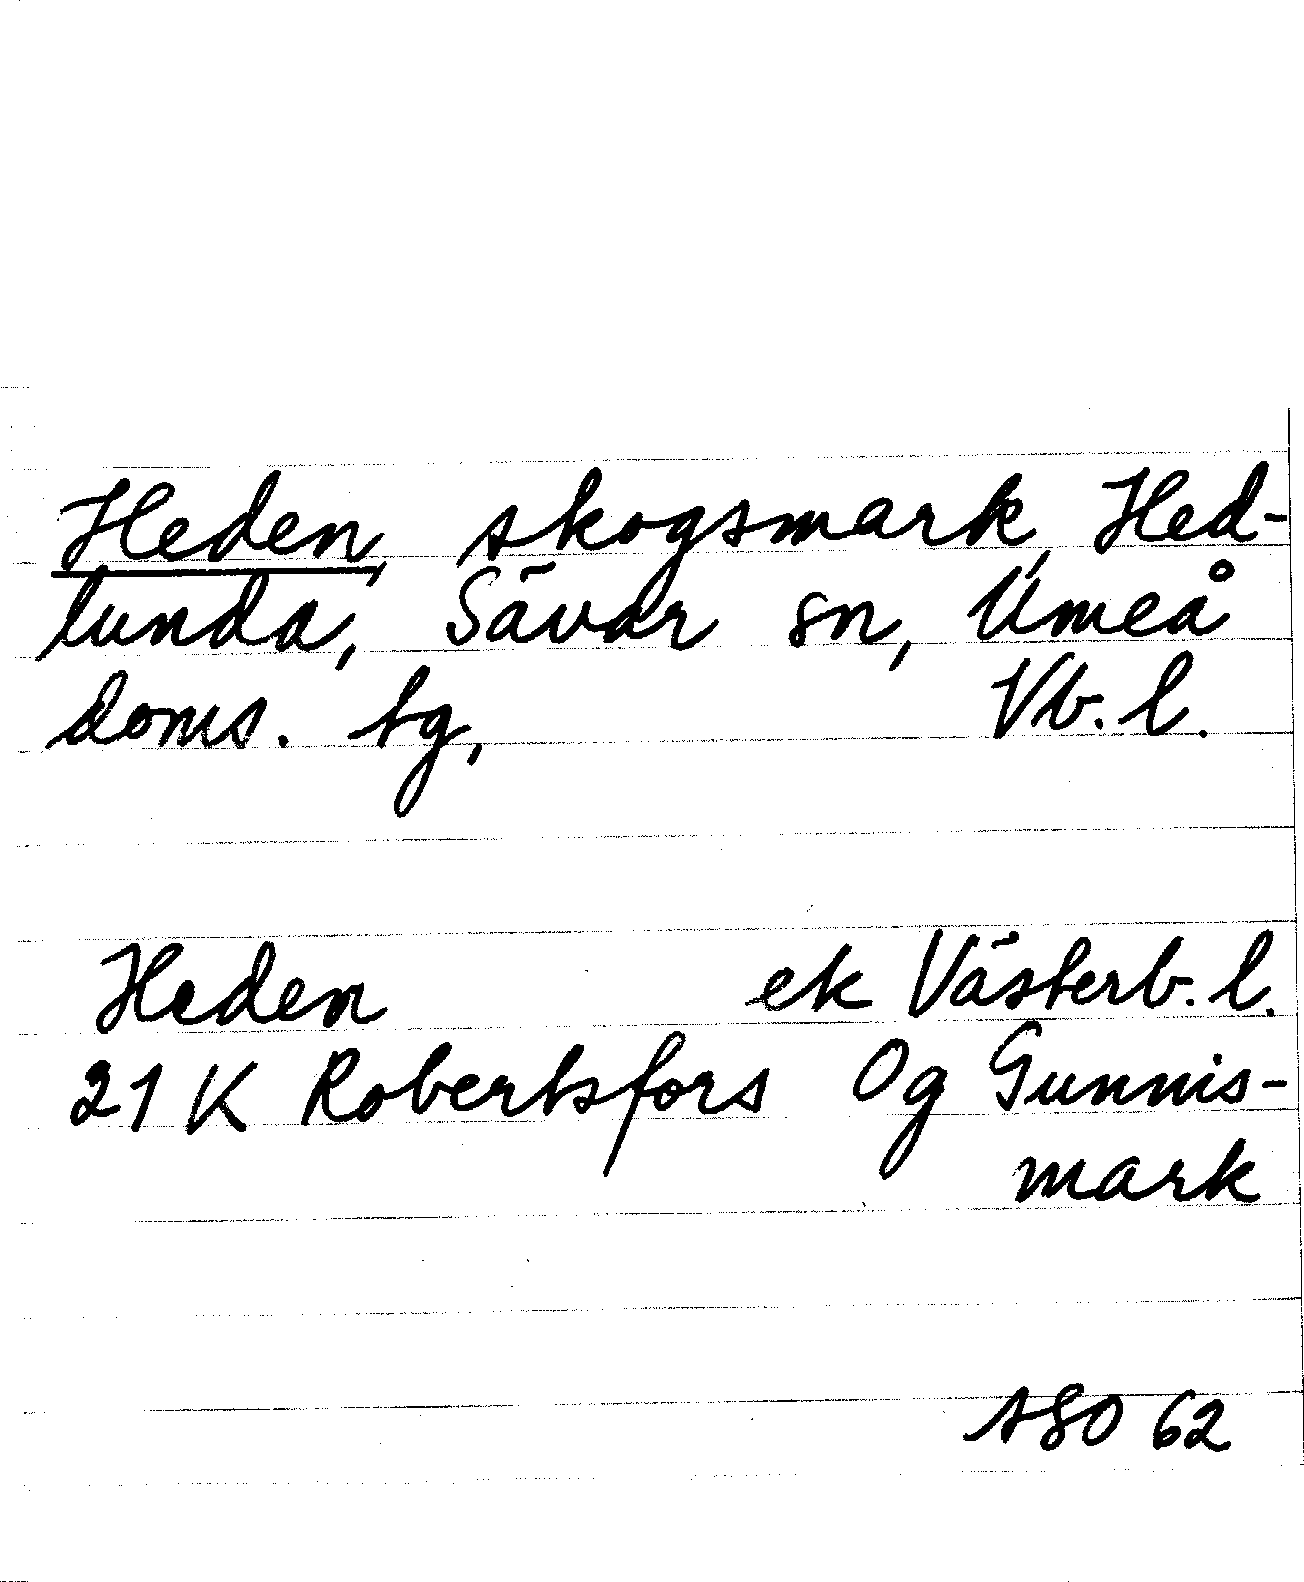 Heden, skogsmark, Hed-
lunda, Sävar sn, Umeå
doms. tg, Vb. l.
Heden ek Västerb. l.
21 K Robertsfors Og Gunnis-
mark
62